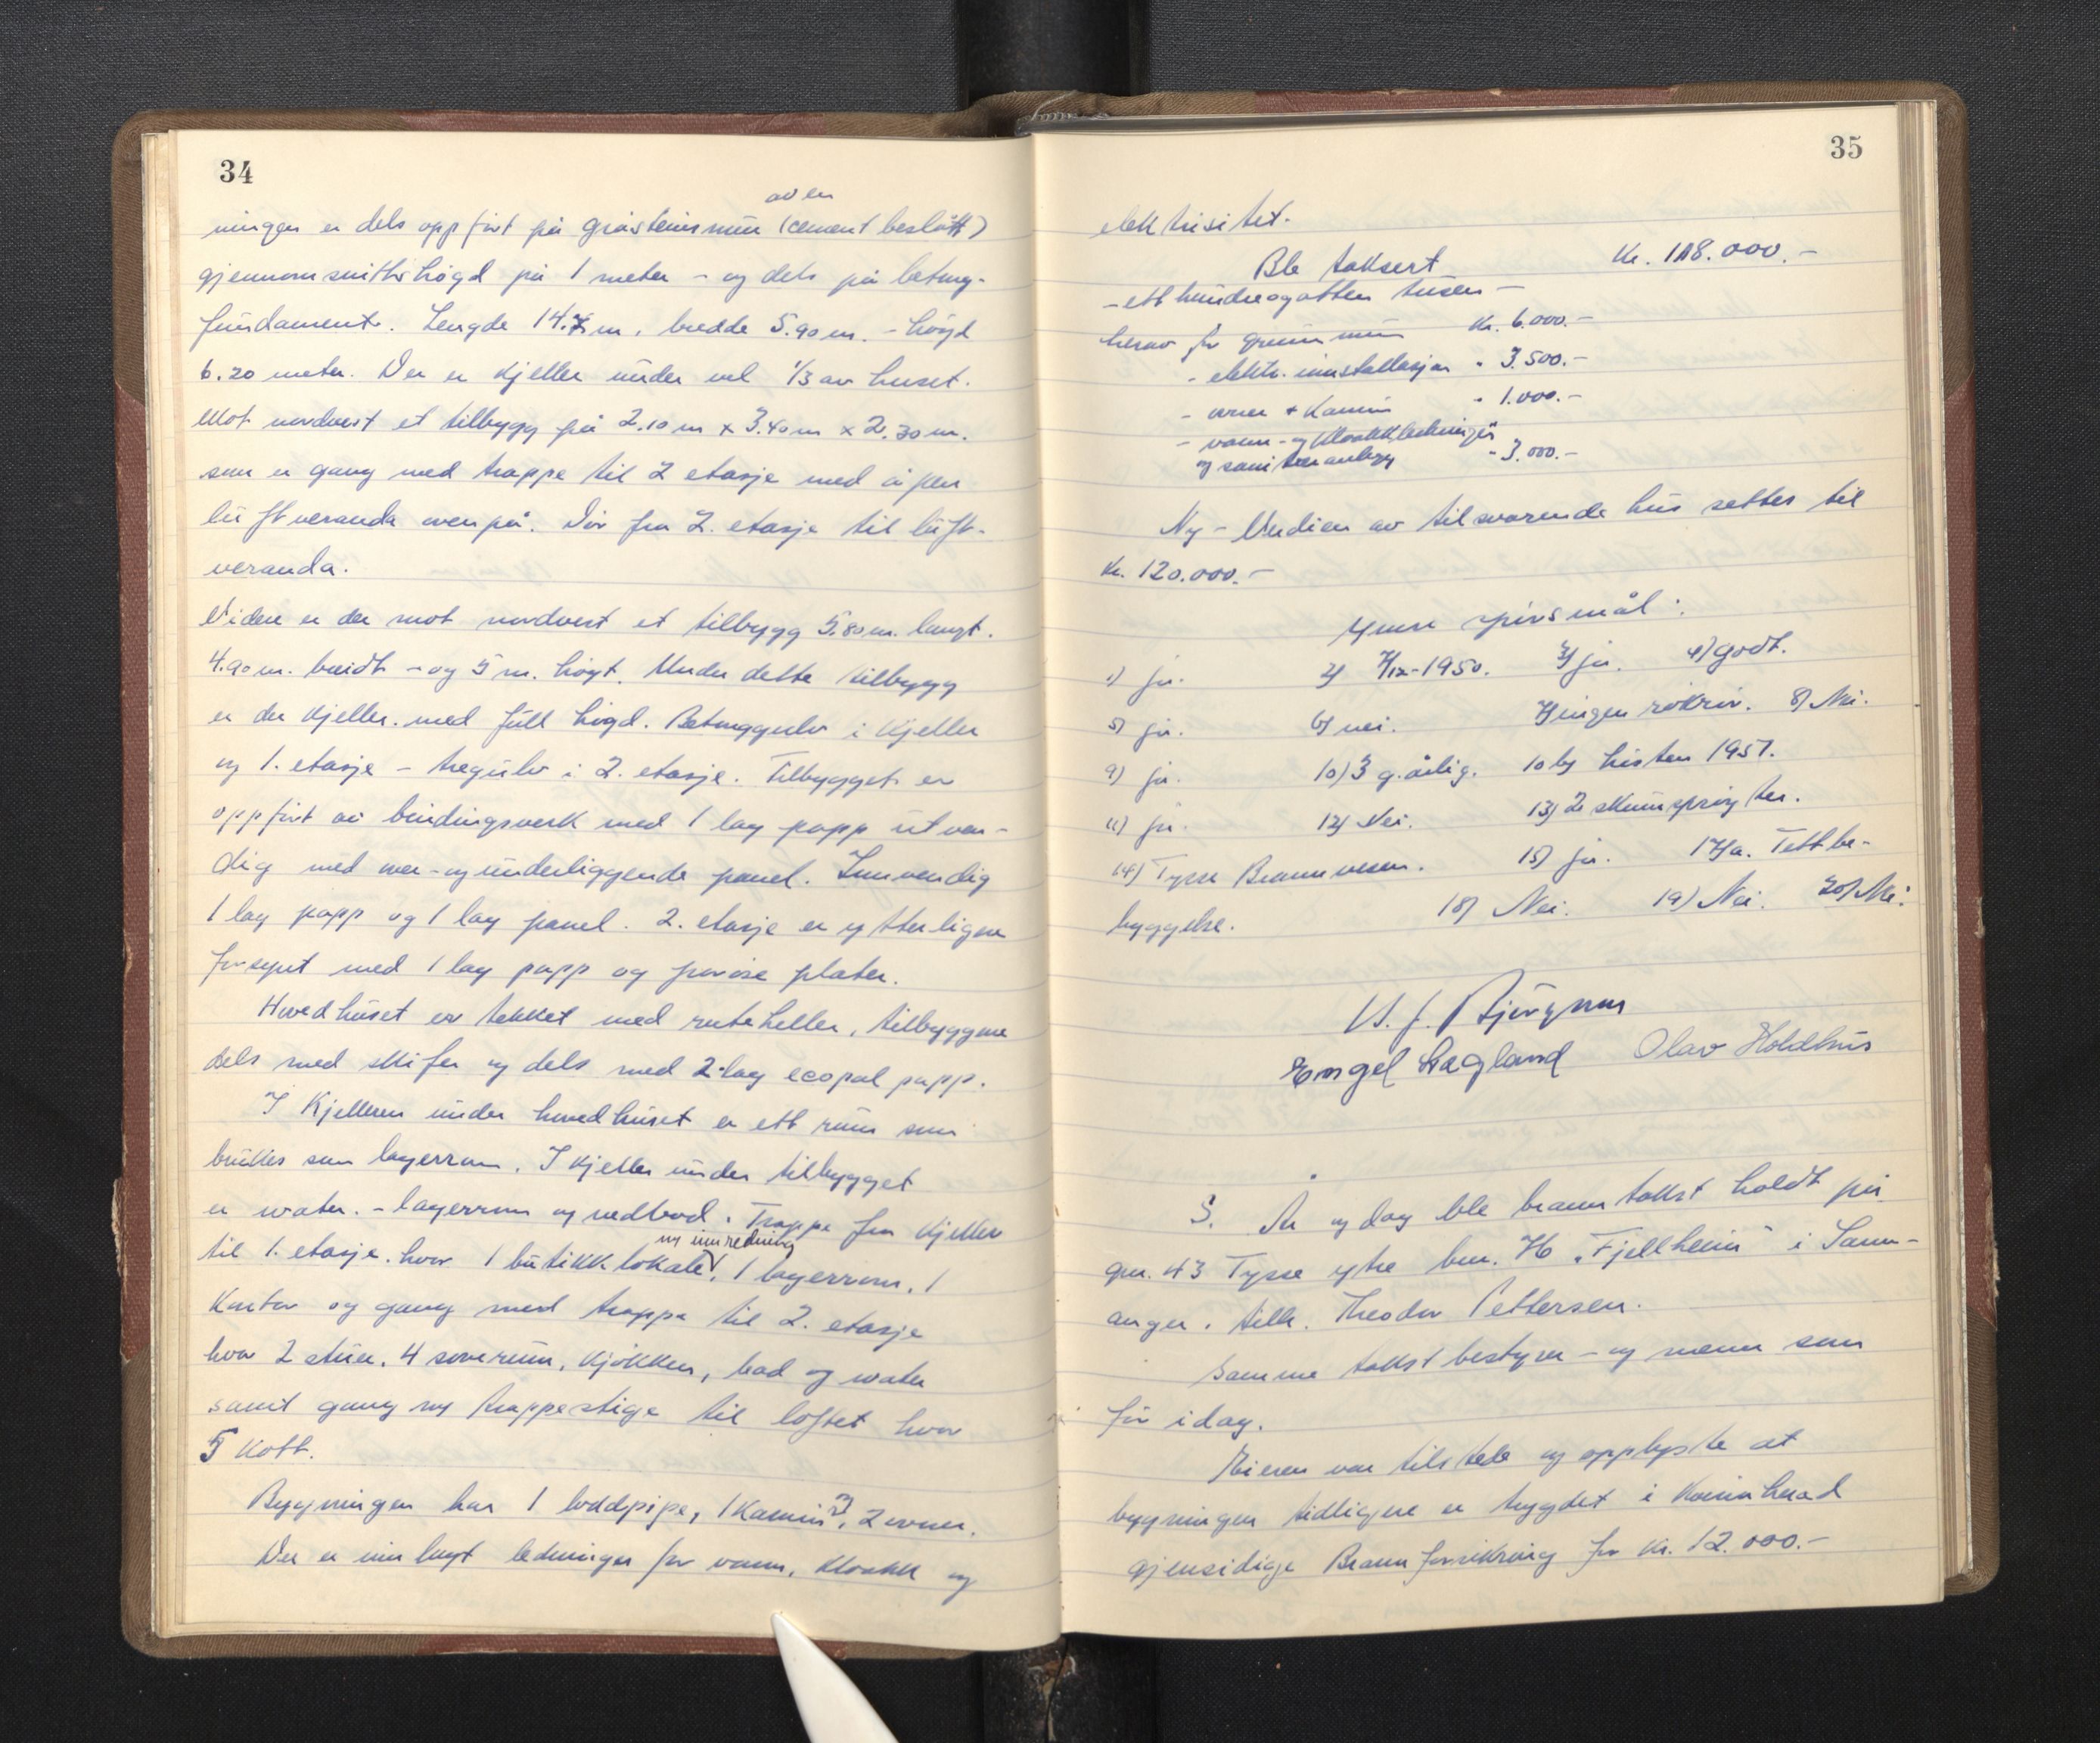 34
av en
ningen er dels oppført på gråsteinsmur (cement beslått)
gjennomsnittshøgd på 1 meter - og dels på betong-
fundament. Lengde 14. m, bredde 5.90 m. - høgd
6.20 meter. Der er kjeller under vel 1/3 av huset.
Mot nordvest et tilbygg på 2.10 m x 3.40 m x 2.30 m.
som er gang med trappe til 2 etasje med åpen
luftveranda ovenpå. Dør fra 2. etasje til luft-
veranda.
Videre er der mot nordvest et tilbygg 5.80 m. langt.
4.90 m. breidt - og 5 m. høgt. Under dette tilbygg
er der kjeller. med full høgd. Betonggulv i kjeller
og 1. etasje - tregulv i 2. etasje. Tilbygget er
oppført av bindingsverk med 1 lag papp utven-
dig med over- og underliggende panel. Innvendig
1 lag papp og 1 lag panel. 2. etasje er ytterligere
forsynt med 1 lag papp og porøse plater.
Hovedhuset er tekket med ruteheller, tilbyggene
dels med skifer og dels med 2 lag ecopal papp.
I kjelleren under hovedhuset er ett rum som
brukes som lagerrom. I kjeller under tilbygget
er water. - lagerrom og vedbod. Trappe fra kjeller
ny innredning
til 1. etasje. hvor 1 butikklokale, 1 lagerrom, 1
kontor og gang med trappe til 2. etasje
hvor 2 stuer, 4 soverum, kjøkken, bad og water
samt gang og trappestige til loftet hvor
5 kott.
Bygningen har 1 loddpipe, 1 kamin, 2 ovner.
Der er innlagt ledninger for vann, kloakk og
35
elektrisitet.
Ble taksert Kr. 118.000.-
- ett hundreogatten tusen -
herav for grunnmur Kr. 6.000.-
- elektr. innstallasjon " 3.500.-
- ovner + kamin " 1.000.-
- vann- og kloakkledninger
og sanitæranlegg " 3.000.-
Ny-Verdien av tilsvarende hus settes til
kr. 120.000.-
Ymse spørsmål:
1) ja. 2) 7/12-1950. 3) ja. 4) godt.
5) ja. 6) nei. 7) ingen rökrör. 8) Nei.
9) ja. 10) 3 g. årlig. 10 b) høsten 1951.
11) ja. 12) Nei. 13) 2 skumsprøyter.
14) Tysse Brannvesen. 15) ja. 17) a. Tettbe-
byggelse. 18) Nei. 19) Nei. 20) Nei.
Engel Hagland Olav Holdhus
S. År og dag ble branntakst holdt på
gnr. 43 Tysse ytre bnr. 76 "Fjellheim" i Samn-
anger. tilh. Theodor Pettersen.
Samme takstbestyrer - og menn som
før idag.
Eieren var tilstede og opplyste at
bygningen tidligere er trygdet i Kvinnherad
gjensidige Brannforsikring for kr. 12.000.-